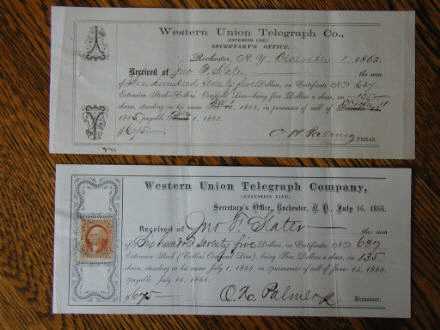 Western Union Telegraph Co.,
(EXTENSION LINE)
SECRETARY'S OFFICE,
Rochester, N. Y. 1, 186
Received of Jno F. Slater the sum
of Six hundred seventy five Dollars, in Certificate No 687
Extension Stock being Dollars a share, on 135
shares, standing in name 1865, in pursuance of call of
1865 payable 1, 1865.
$675
Western Union Telegraph Company,
(EXTENSION LINE)
Secretary's Office, Rochester, N. Y., July 16, 1866.
Received of Jno F. Slater the sum
of Six hundred seventy five Dollars, in Certificate No 687
Extension Stock (Collins' Overland Line), being Five Dollars a share, on 135
shares, standing in his name July 1, 1866, in pursuance of call of June 1866,
payable July 16, 1866.
$675 O. H. Palmer